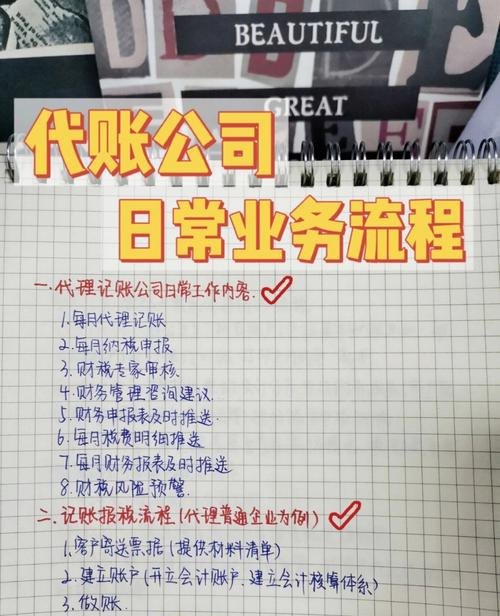 BEAUTIFUL
GREAT
代账公司
日常业务流程
一.代理记账公司日常工作内容.
1.每月代理记账
2.每月纳税申报
3.财税专家审核.
4.财务管理咨询建议.
5.财务申报表及时推送
6.每月税费明细推送
7.每月财务报表及时推送
8.财税风险预警.
二.记账报税流程(代理普通企业为例)
1.客户寄送票据(提供材料清单)
2.建立账户(开立会计账户.建立会计核算体系)
3.做账.